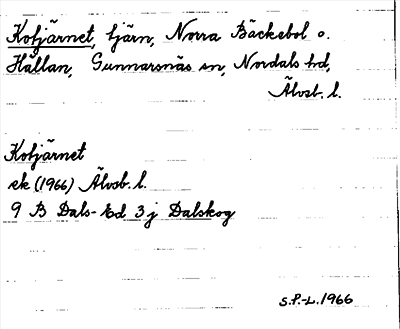 Kotjärnet, tjärn, Norra Bäckebol o.
Hällan, Gunnarsnäs sn, Nordals hd,
Älvsb. l.
Kotjärnet
ek (1966) Älvsb. l.
9 B Dals-Ed 3 j Dalskog
S.P.-L. 1966